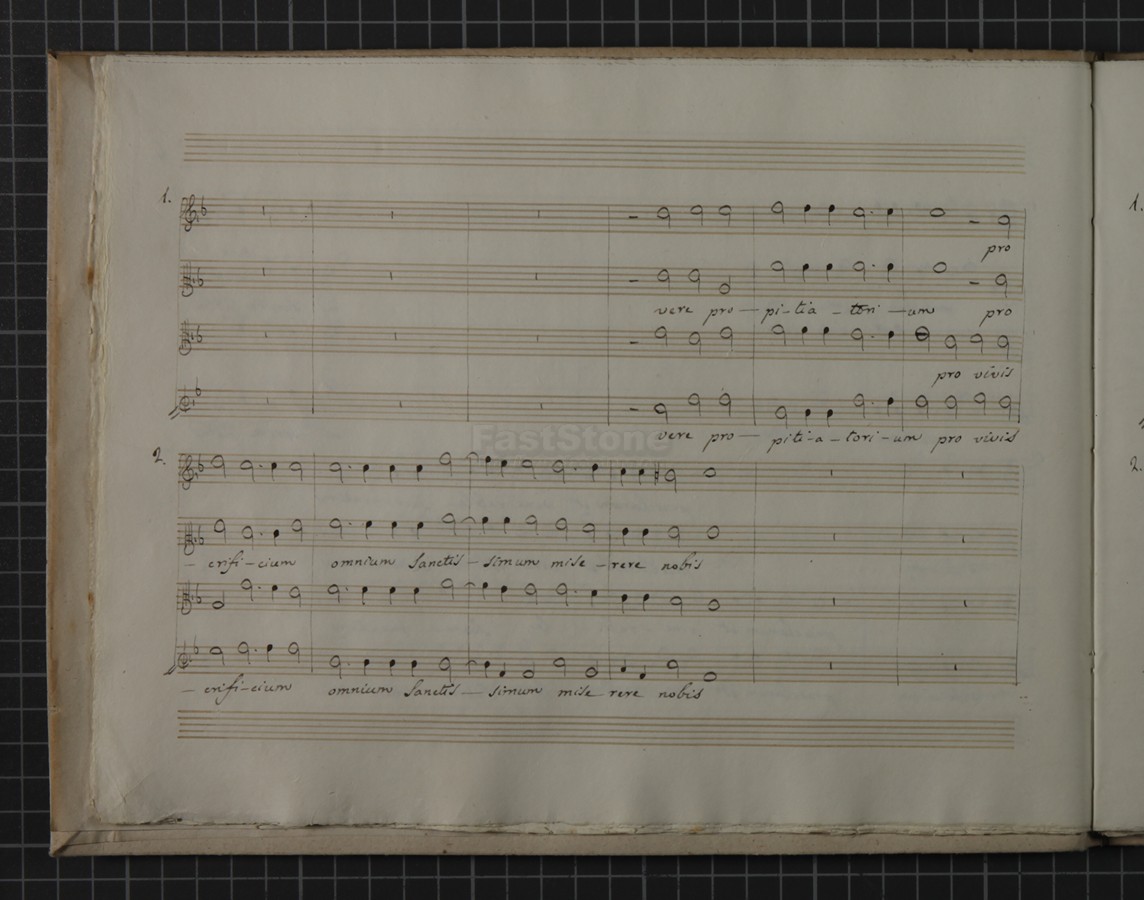 1.
pro
vere pro — pi-tia - tori — um pro
pro vivis
vere pro — piti-a - tori - um pro vivis
FastStone
2.
- crifi-cium omnium Sanctis - simum mise - rere nobis
- crifi-cium omnium Sanctis - simum mise rere nobis
1.
2.